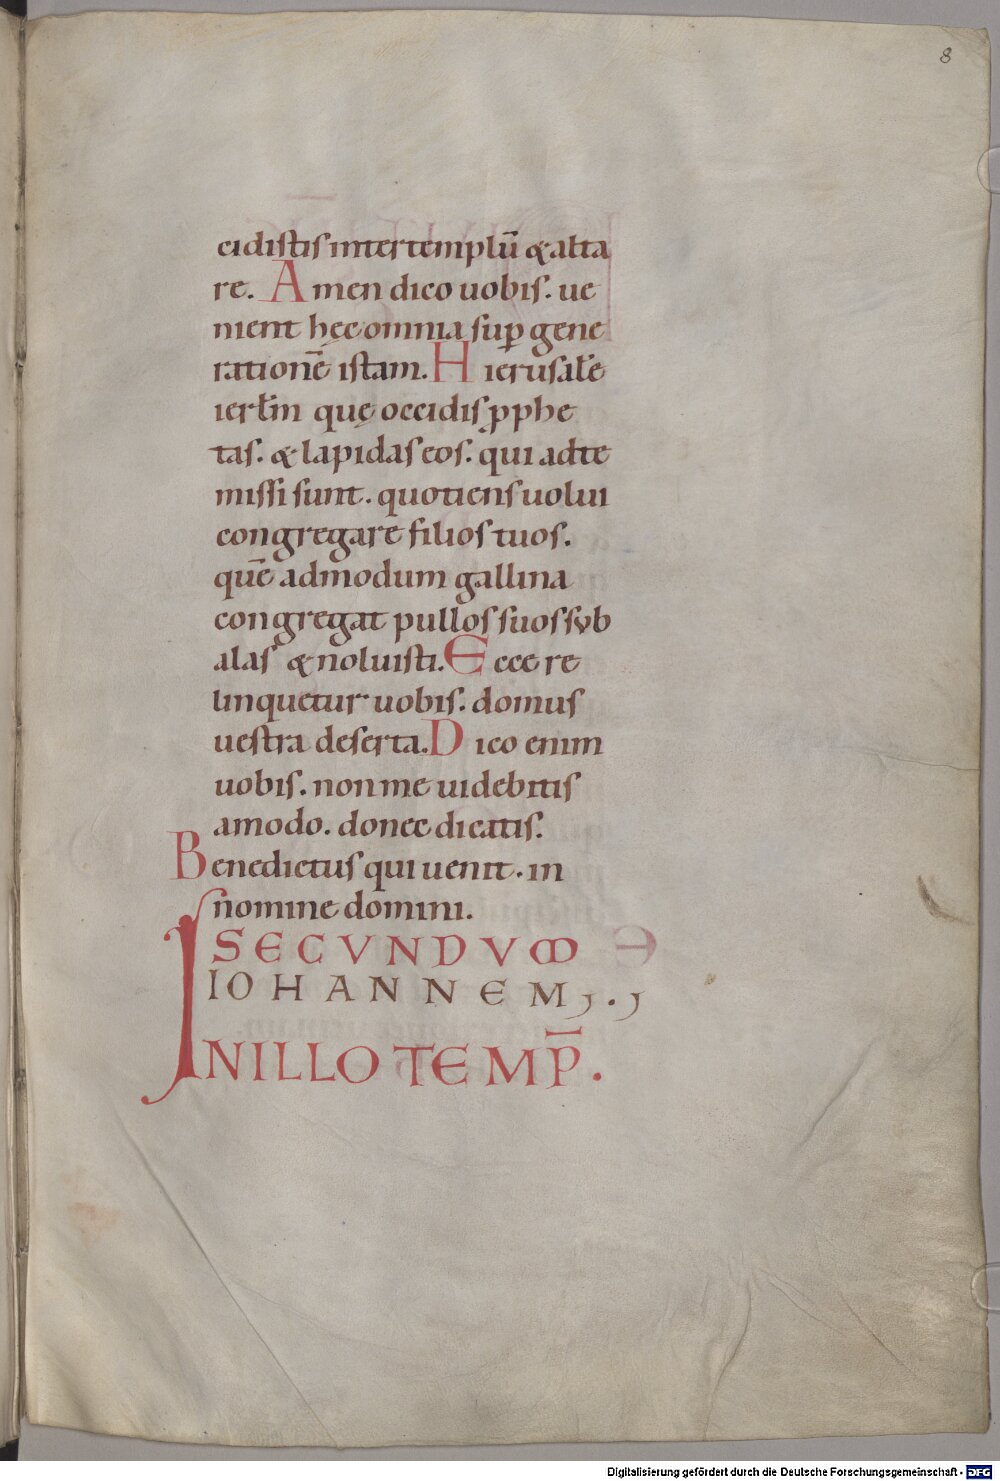 8
cidistis inter templū & alta
re. Amen dico uobis. ue
nient hęc omnia sup̄ gene
rationē istam. Hierusalē
ierłm quę occidis pphe
tas. & lapidas eos. qui ad te
missi sunt. quotiens uolui
congregare filios tuos.
quē admodum gallina
congregat pullos suos svb
alas & noluisti. Ecce re
linquetur uobis. domus
uestra deserta. Dico enim
uobis. non me uidebitis
amodo. donec dicatis.
Benedictus qui uenit. in
nomine domini.
SECVNDVM
IOHANNEM
IN ILLO TEMP̄.
Digitalisierung gefördert durch die Deutsche Forschungsgemeinschaft - DFG